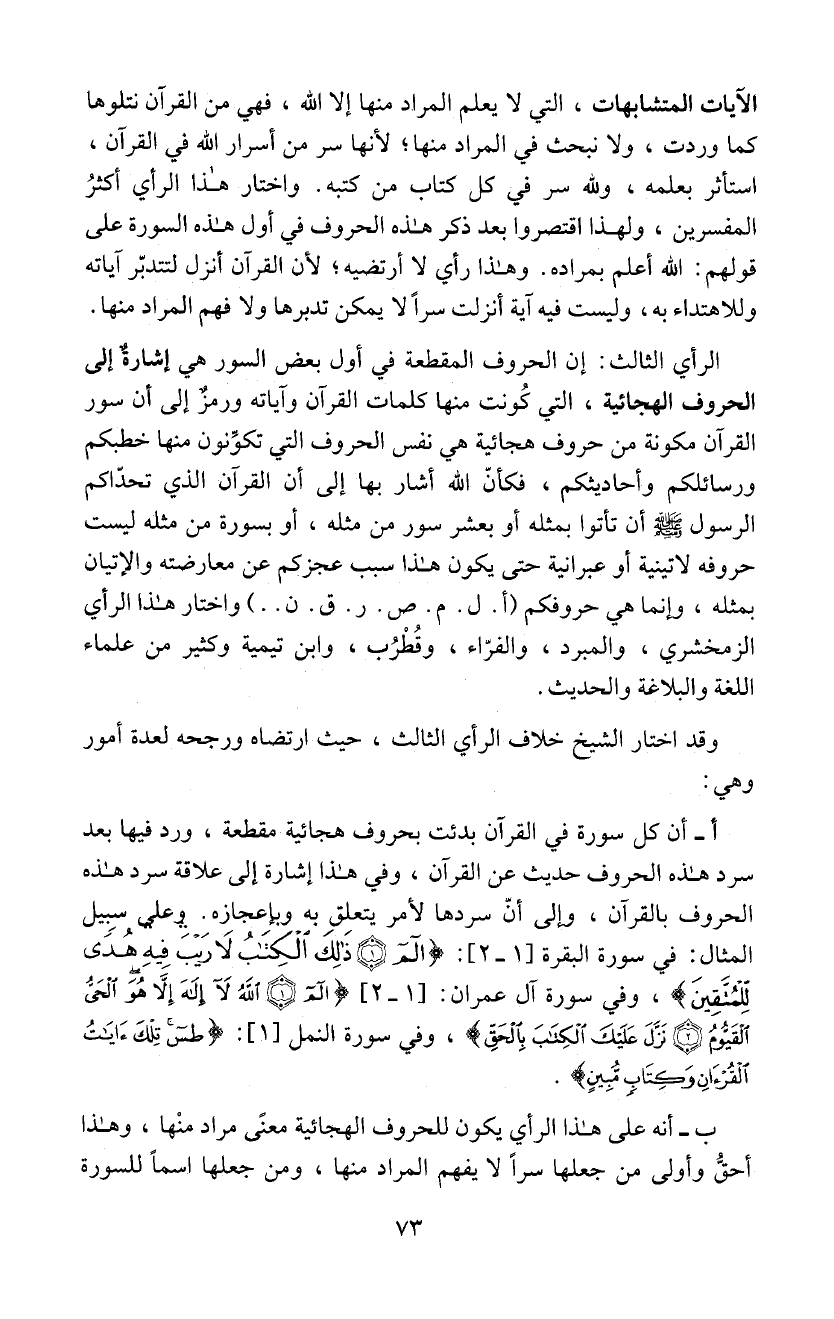 الآيات المتشابهات ، التي لا يعلم المراد منها إلا الله ، فهي من القرآن نتلوها
كما وردت ، ولا نبحث في المراد منها؛ لأنها سر من أسرار الله في القرآن ،
استأثر بعلمه ، ولله سر في كل كتاب من كتبه. واختار هـٰذا الرأي أكثرُ
المفسرين ، ولهـذا اقتصروا بعد ذكر هـٰذه الحروف في أول هـٰذه السورة على
قولهم: الله أعلم بمراده. وهـٰذا رأي لا أرتضيه؛ لأن القرآن أنزل لتتدبّر آياته
وللاهتداء به، وليست فيه آية أنزلت سراً لا يمكن تدبرها ولا فهم المراد منها.
الرأي الثالث: إن الحروف المقطعة في أول بعض السور هي إشارةٌ إلى
الحروف الهجائية ، التي كُونت منها كلمات القرآن وآياته ورمزٌ إلى أن سور
القرآن مكونة من حروف هجائية هي نفس الحروف التي تكوِّنون منها خطبكم
ورسائلكم وأحاديثكم ، فكأنّ الله أشار بها إلى أن القرآن الذي تحدّاكم
الرسول ﷺ أن تأتوا بمثله أو بعشر سور من مثله ، أو بسورة من مثله ليست
حروفه لاتينية أو عبرانية حتى يكون هـٰذا سبب عجزكم عن معارضته والإتيان
بمثله ، وإنما هي حروفكم (أ. ل. م. ص. ر. ق. ن. .) واختار هـٰذا الرأي
الزمخشري ، والمبرد ، والفرّاء ، وقُطْرُب ، وابن تيمية وكثير من علماء
اللغة والبلاغة والحديث.
وقد اختار الشيخ خلاف الرأي الثالث ، حيث ارتضاه ورجحه لعدة أمور
وهي:
أ ـ أن كل سورة في القرآن بدئت بحروف هجائية مقطعة ، ورد فيها بعد
سرد هـٰذه الحروف حديث عن القرآن ، وفي هـٰذا إشارة إلى علاقة سرد هـٰذه
الحروف بالقرآن ، وإلى أنّ سردها لأمر يتعلق به وبإعجازه. وعلى سبيل
المثال: في سورة البقرة [١ ـ ٢]: ﴿الٓمٓ ۝١ ذَٰلِكَ ٱلْكِتَٰبُ لَا رَيْبَ فِيهِ هُدًى
لِّلْمُتَّقِينَ﴾ ، وفي سورة آل عمران: [١ ـ ٢] ﴿الٓمٓ ۝١ ٱللَّهُ لَآ إِلَٰهَ إِلَّا هُوَ ٱلْحَىُّ
ٱلْقَيُّومُ ۝٢ نَزَّلَ عَلَيْكَ ٱلْكِتَٰبَ بِٱلْحَقِّ﴾ ، وفي سورة النمل [١]: ﴿طسٓ تِلْكَ ءَايَٰتُ
ٱلْقُرْءَانِ وَكِتَابٍ مُّبِينٍ﴾ .
ب ـ أنه على هـٰذا الرأي يكون للحروف الهجائية معنًى مراد منْها ، وهـٰذا
أحقُّ وأولى من جعلها سراً لا يفهم المراد منها ، ومن جعلها اسماً للسورة
٧٣